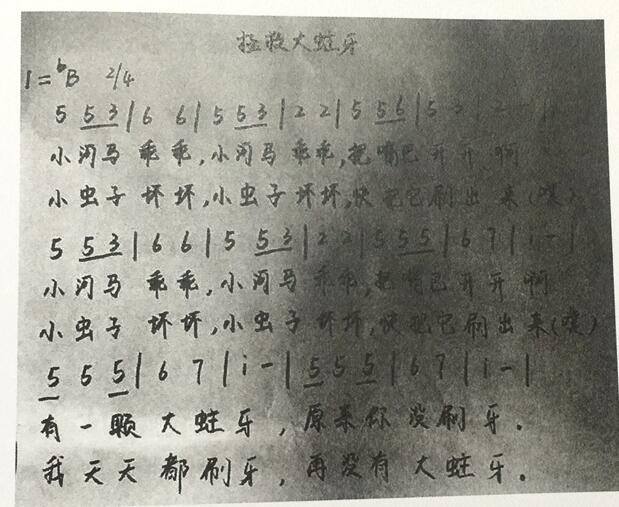 拯救大蛀牙
1=♭B 2/4
5 5 3 | 6 6 | 5 5 3 | 2 2 | 5 5 6 | 5
小河马 乖乖,小河马 乖乖,把嘴巴开开 啊
小虫子 坏坏,小虫子 坏坏,快把它刷出 来(噗)
5 5 3 | 6 6 | 5 5 3 | 2 2 | 5 5 5 | 6 7 | i - |
小河马 乖乖,小河马 乖乖,把嘴巴开开 啊
小虫子 坏坏,小虫子 坏坏,快把它刷出来(噗)
5 5 5 | 6 7 | i - | 5 5 5 | 6 7 | i - |
有一颗 大蛀牙,原来你没刷牙.
我天天都刷牙,再没有大蛀牙.